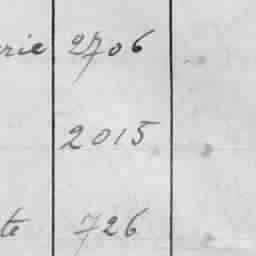 rie 2706
2015
te 726